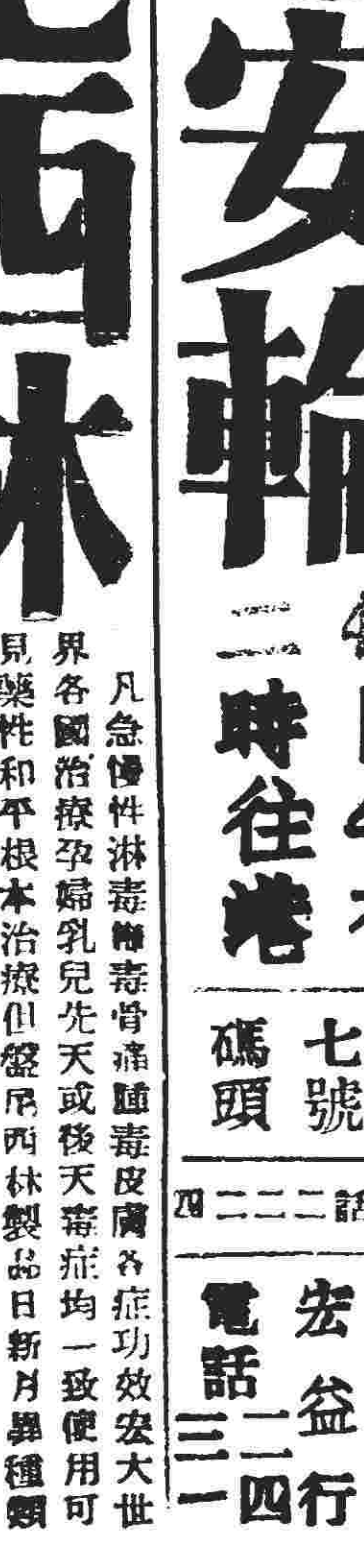 安輪
二時往港
七號
碼頭
話二二二四
宏益行
電話
二四
三一
西林
凡急慢性淋毒梅毒骨痛腫毒皮膚各症功效宏大世
界各國治療孕婦乳兒先天或後天毒症均一致使用可
見藥性和平根本治療但盤尼西林製品日新月異種類